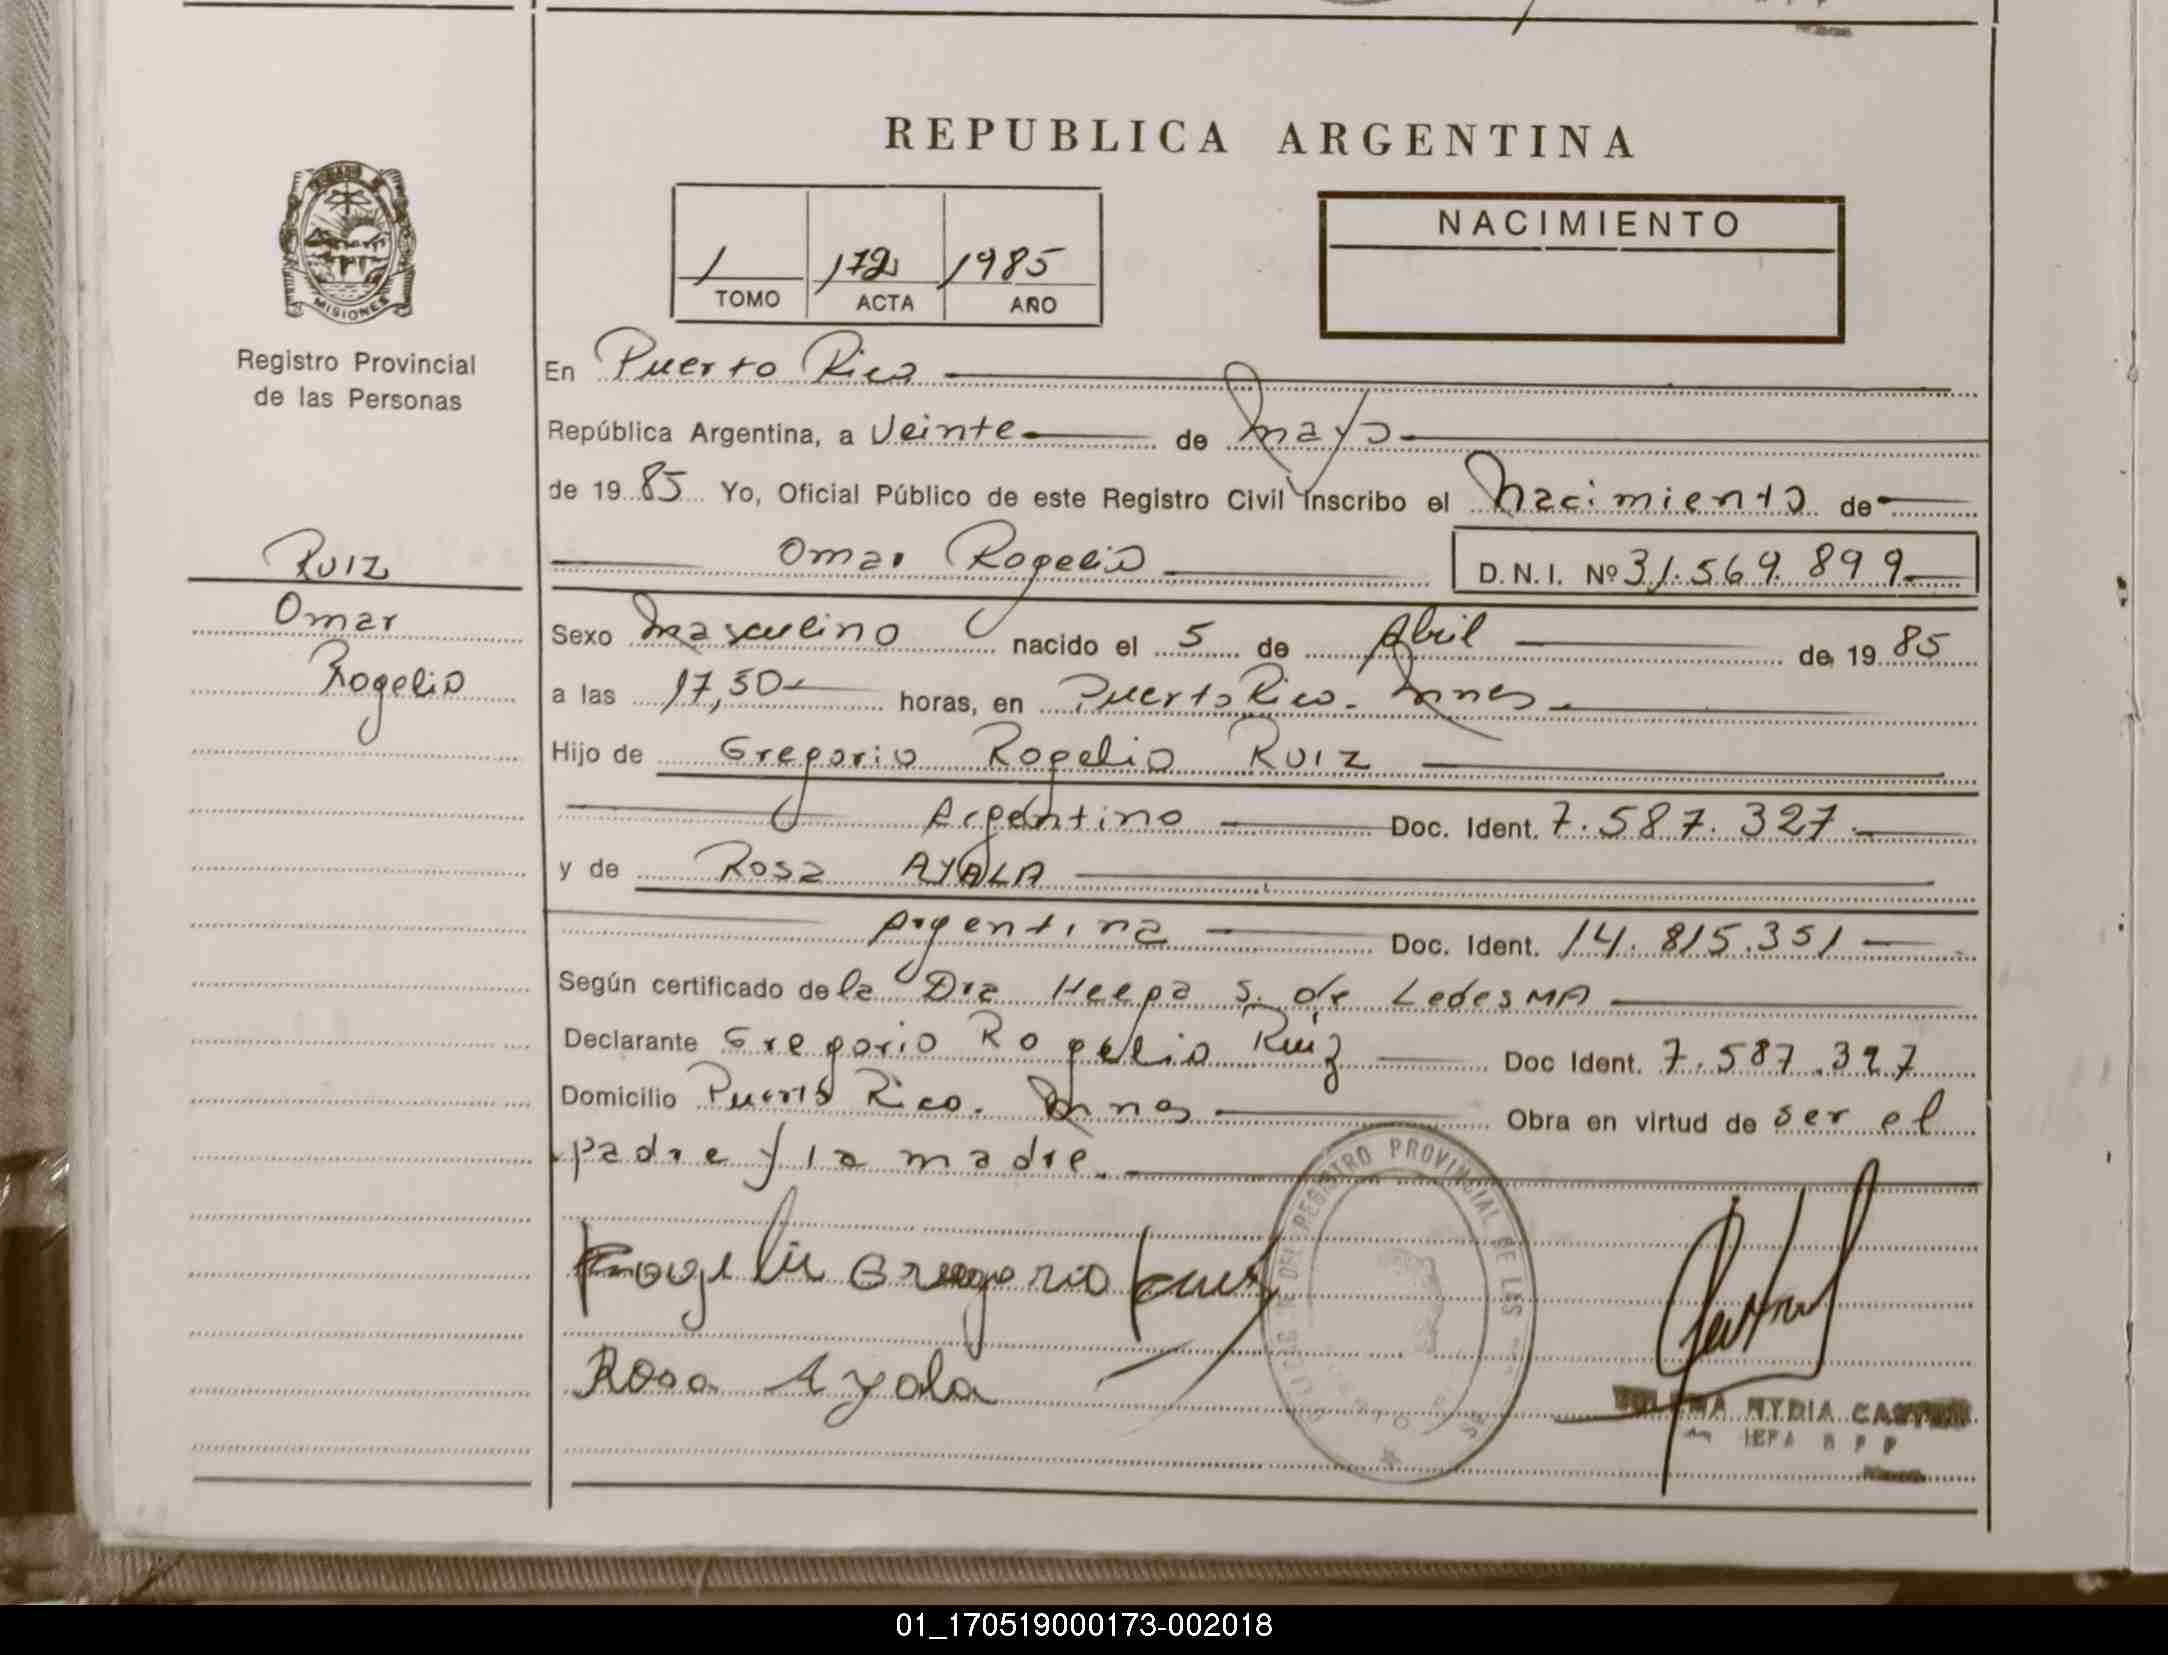 REPUBLICA ARGENTINA
MISIONES
Registro Provincial
de las Personas
1 172 1985
TOMO ACTA AÑO
NACIMIENTO
En Puerto Rico
República Argentina, a Veinte de mayo
de 1985 Yo, Oficial Público de este Registro Civil inscribo el Nacimiento de
Omar Rogelio D.N.I. Nº 31.569.899
Ruiz
Omar
Rogelio
Sexo Masculino nacido el 5 de Abril de 1985
a las 17,50 horas, en Puerto Rico. Mnes
Hijo de Gregorio Rogelio Ruiz
Argentino Doc. Ident. 7.587.327
y de Rosa AYALA
Argentina Doc. Ident. 14.815.351
Según certificado de la Dra Helga S. de Ledesma
Declarante Gregorio Rogelio Ruiz Doc Ident. 7.587.327
Domicilio Puerto Rico. Mnes Obra en virtud de ser el
padre y la madre.
Rogelio Gregorio Ruiz
Rosa Ayala
DEL REGISTRO PROVINCIAL DE LAS
NYDIA
JEFA R P P
01_170519000173-002018